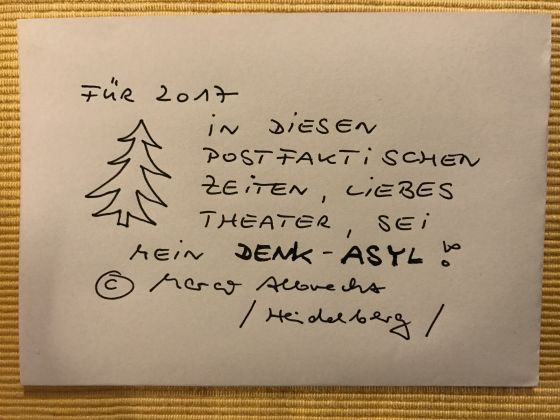 FÜR 2017
IN DIESEN
POSTFAKTISCHEN
ZEITEN, LIEBES
THEATER, SEI
MEIN DENK-ASYL!
© Marco Albrecht
/Heidelberg/